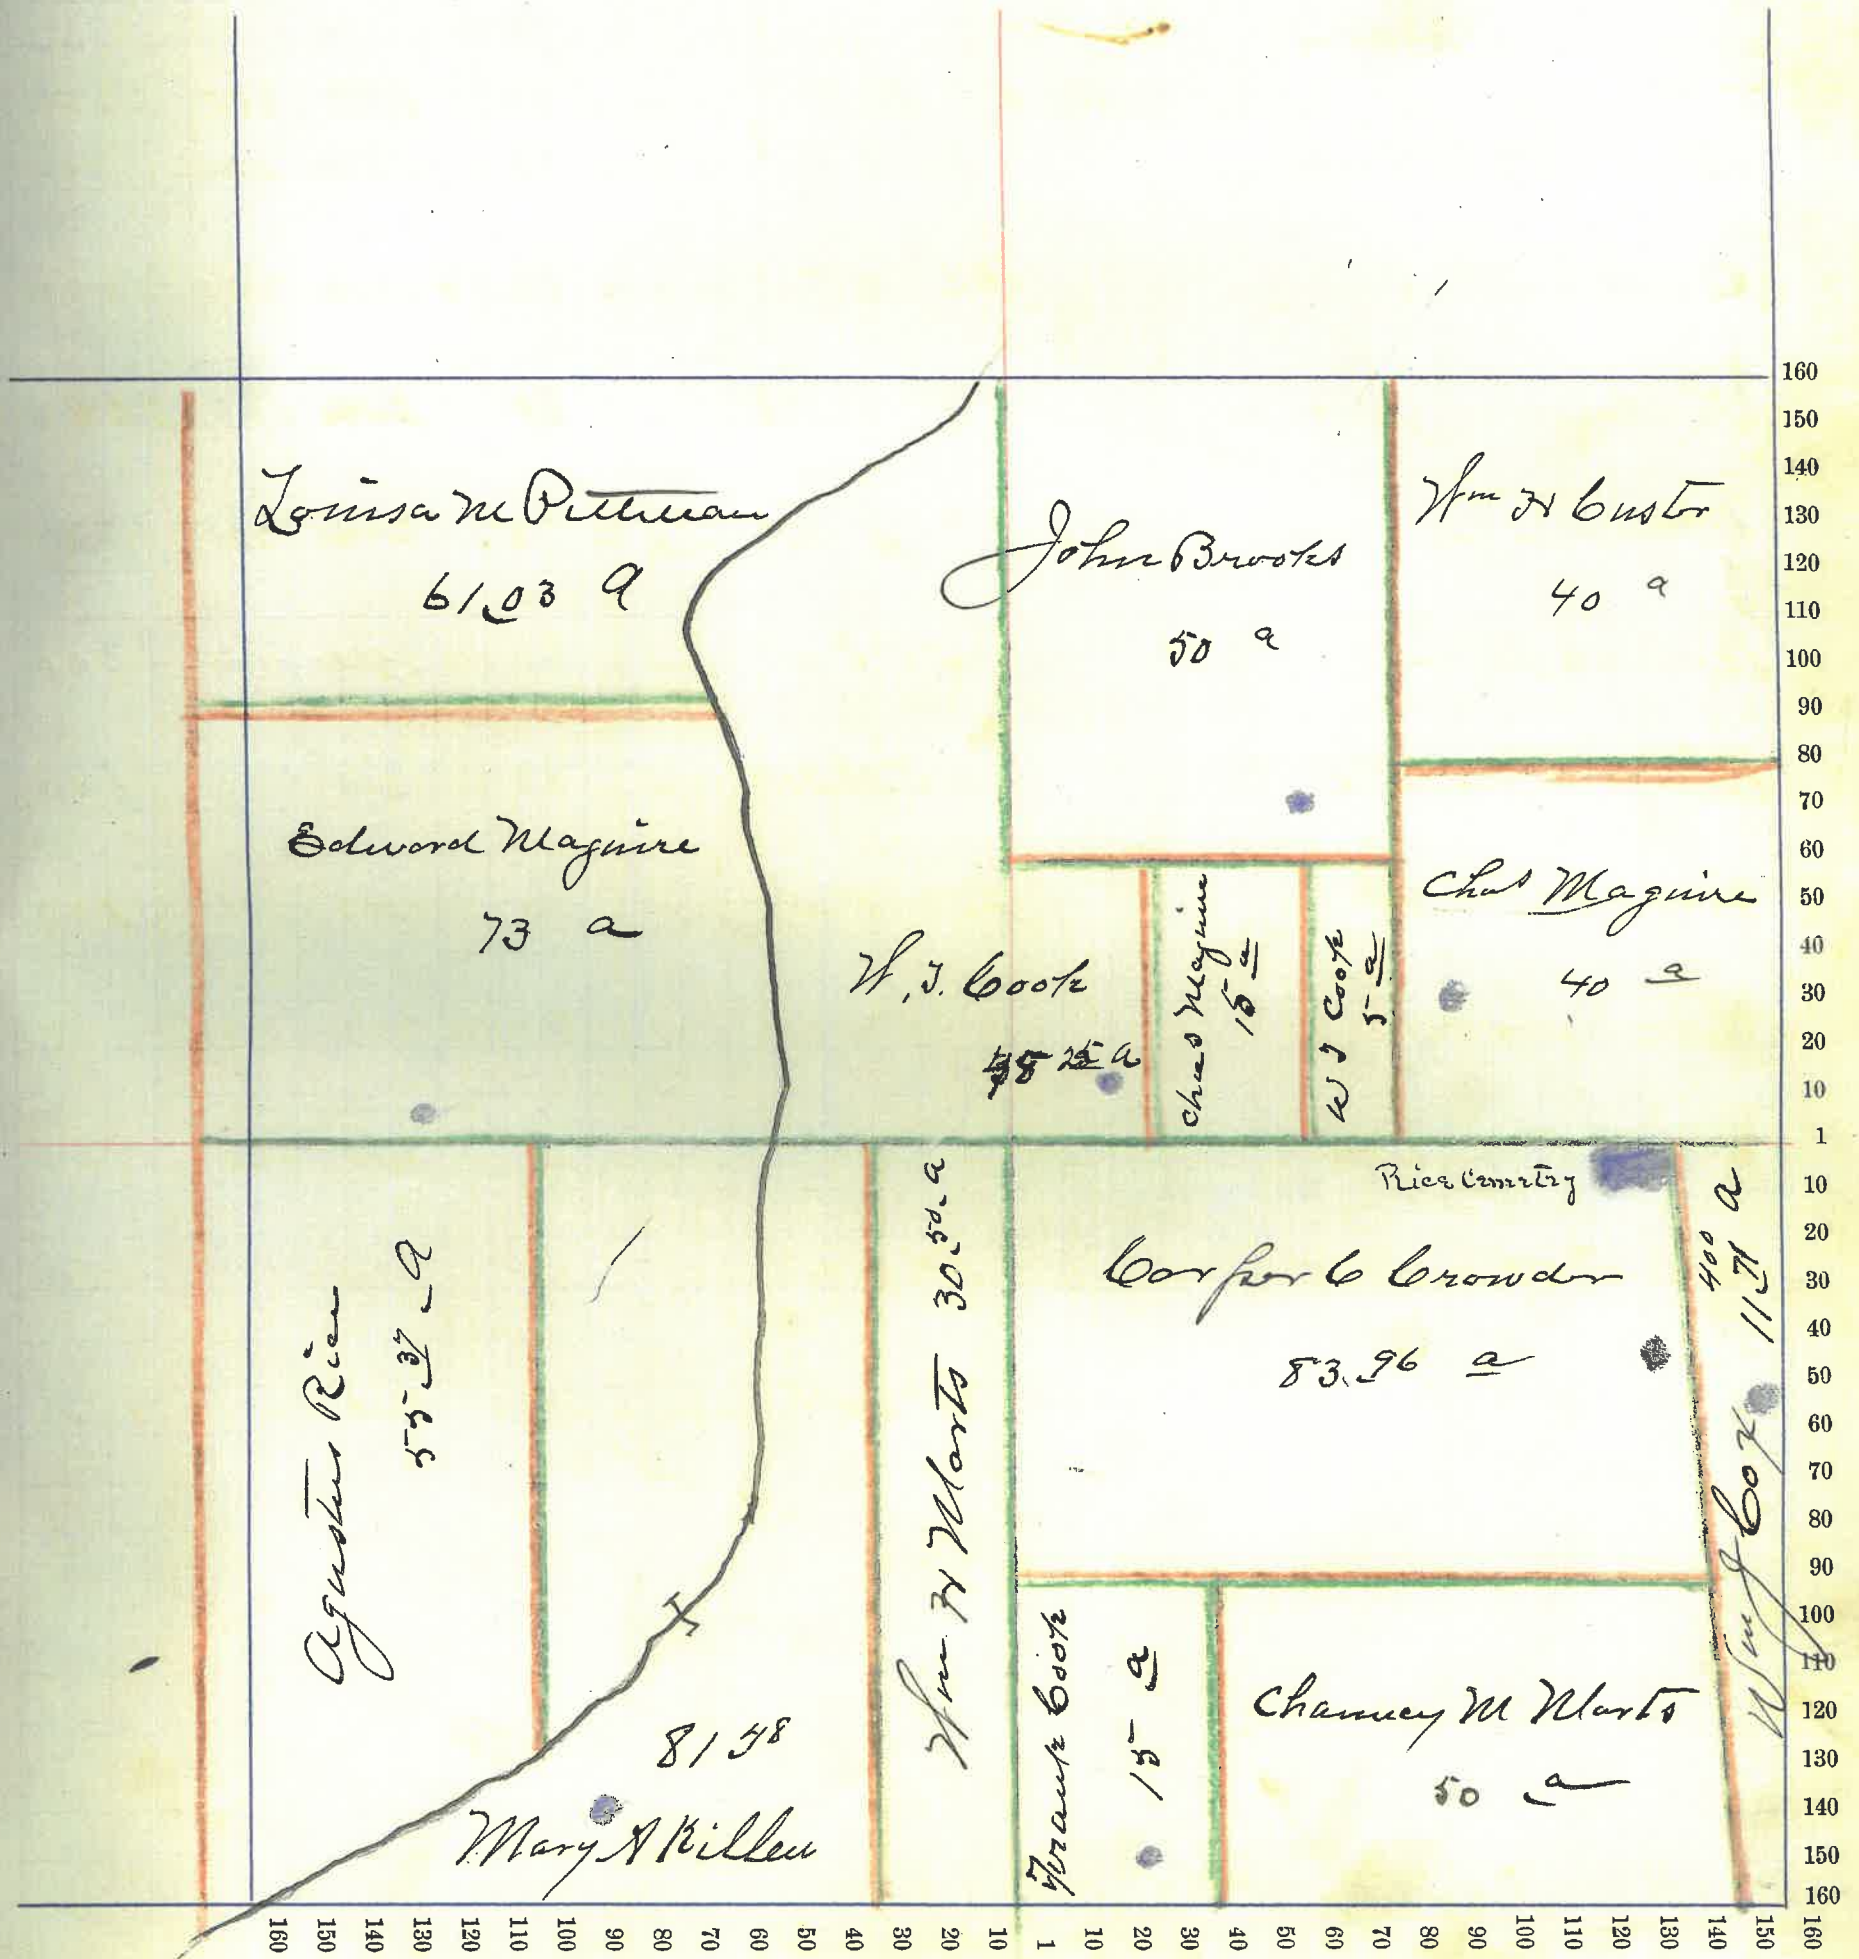 Louisa M Pittman
61.03 a
John Brooks
50 a
Wm H Custer
40 a
Edward Maguire
73 a
W. J. Cook
25 a
Chas Maguire
15 a
W J Cook
5 a
Chas Maguire
40 a
Rice Cemetry
Agustus Rice
55.37 a
81 48
Mary A Killen
Wm H Marts 30.50 a
Casper C Crowder
83.96 a
Wm J Cox 11.71 a
400
Frank Cook
15 a
Chauncy M Marts
50 a
160
150
140
130
120
110
100
90
80
70
60
50
40
30
20
10
1
10
20
30
40
50
60
70
80
90
100
110
120
130
140
150
160
160 150 140 130 120 110 100 90 80 70 60 50 40 30 20 10 1 10 20 30 40 50 60 70 80 90 100 110 120 130 140 150 160